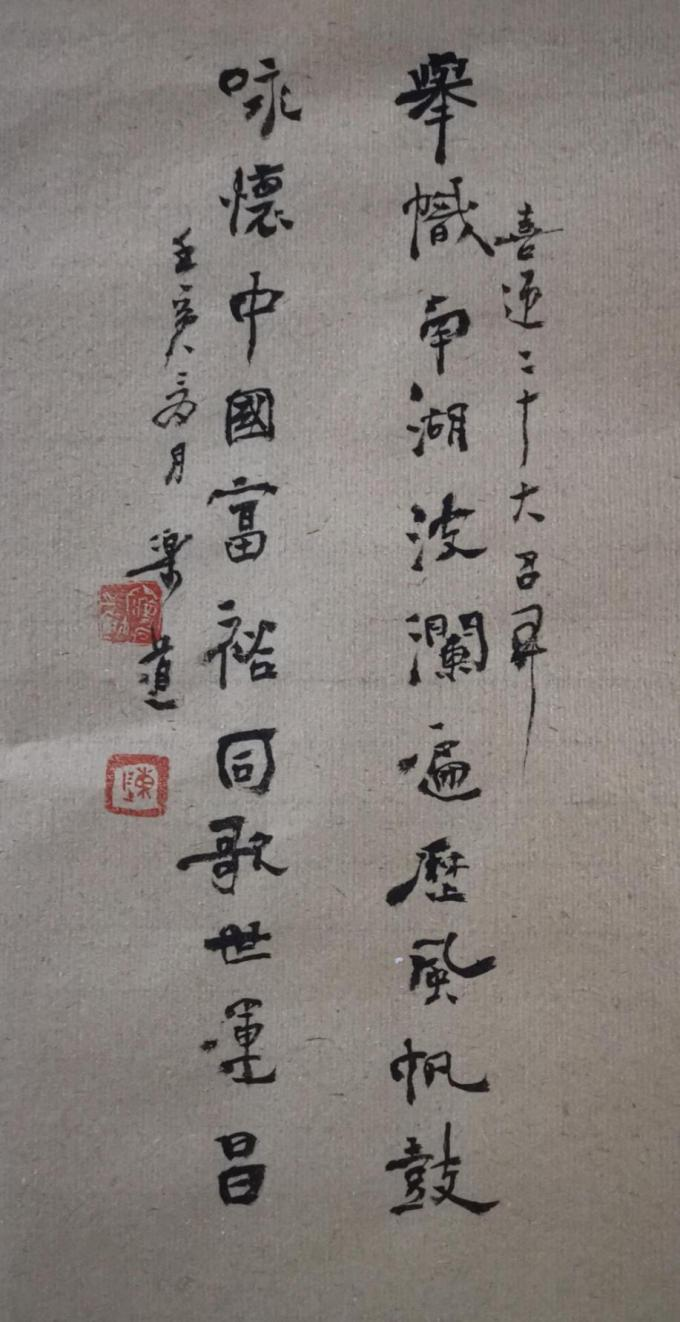 喜迎二十大召開
舉幟南湖波瀾遍歷風帆鼓
咏懷中國富裕同歌世運昌
壬寅月樂道
陳